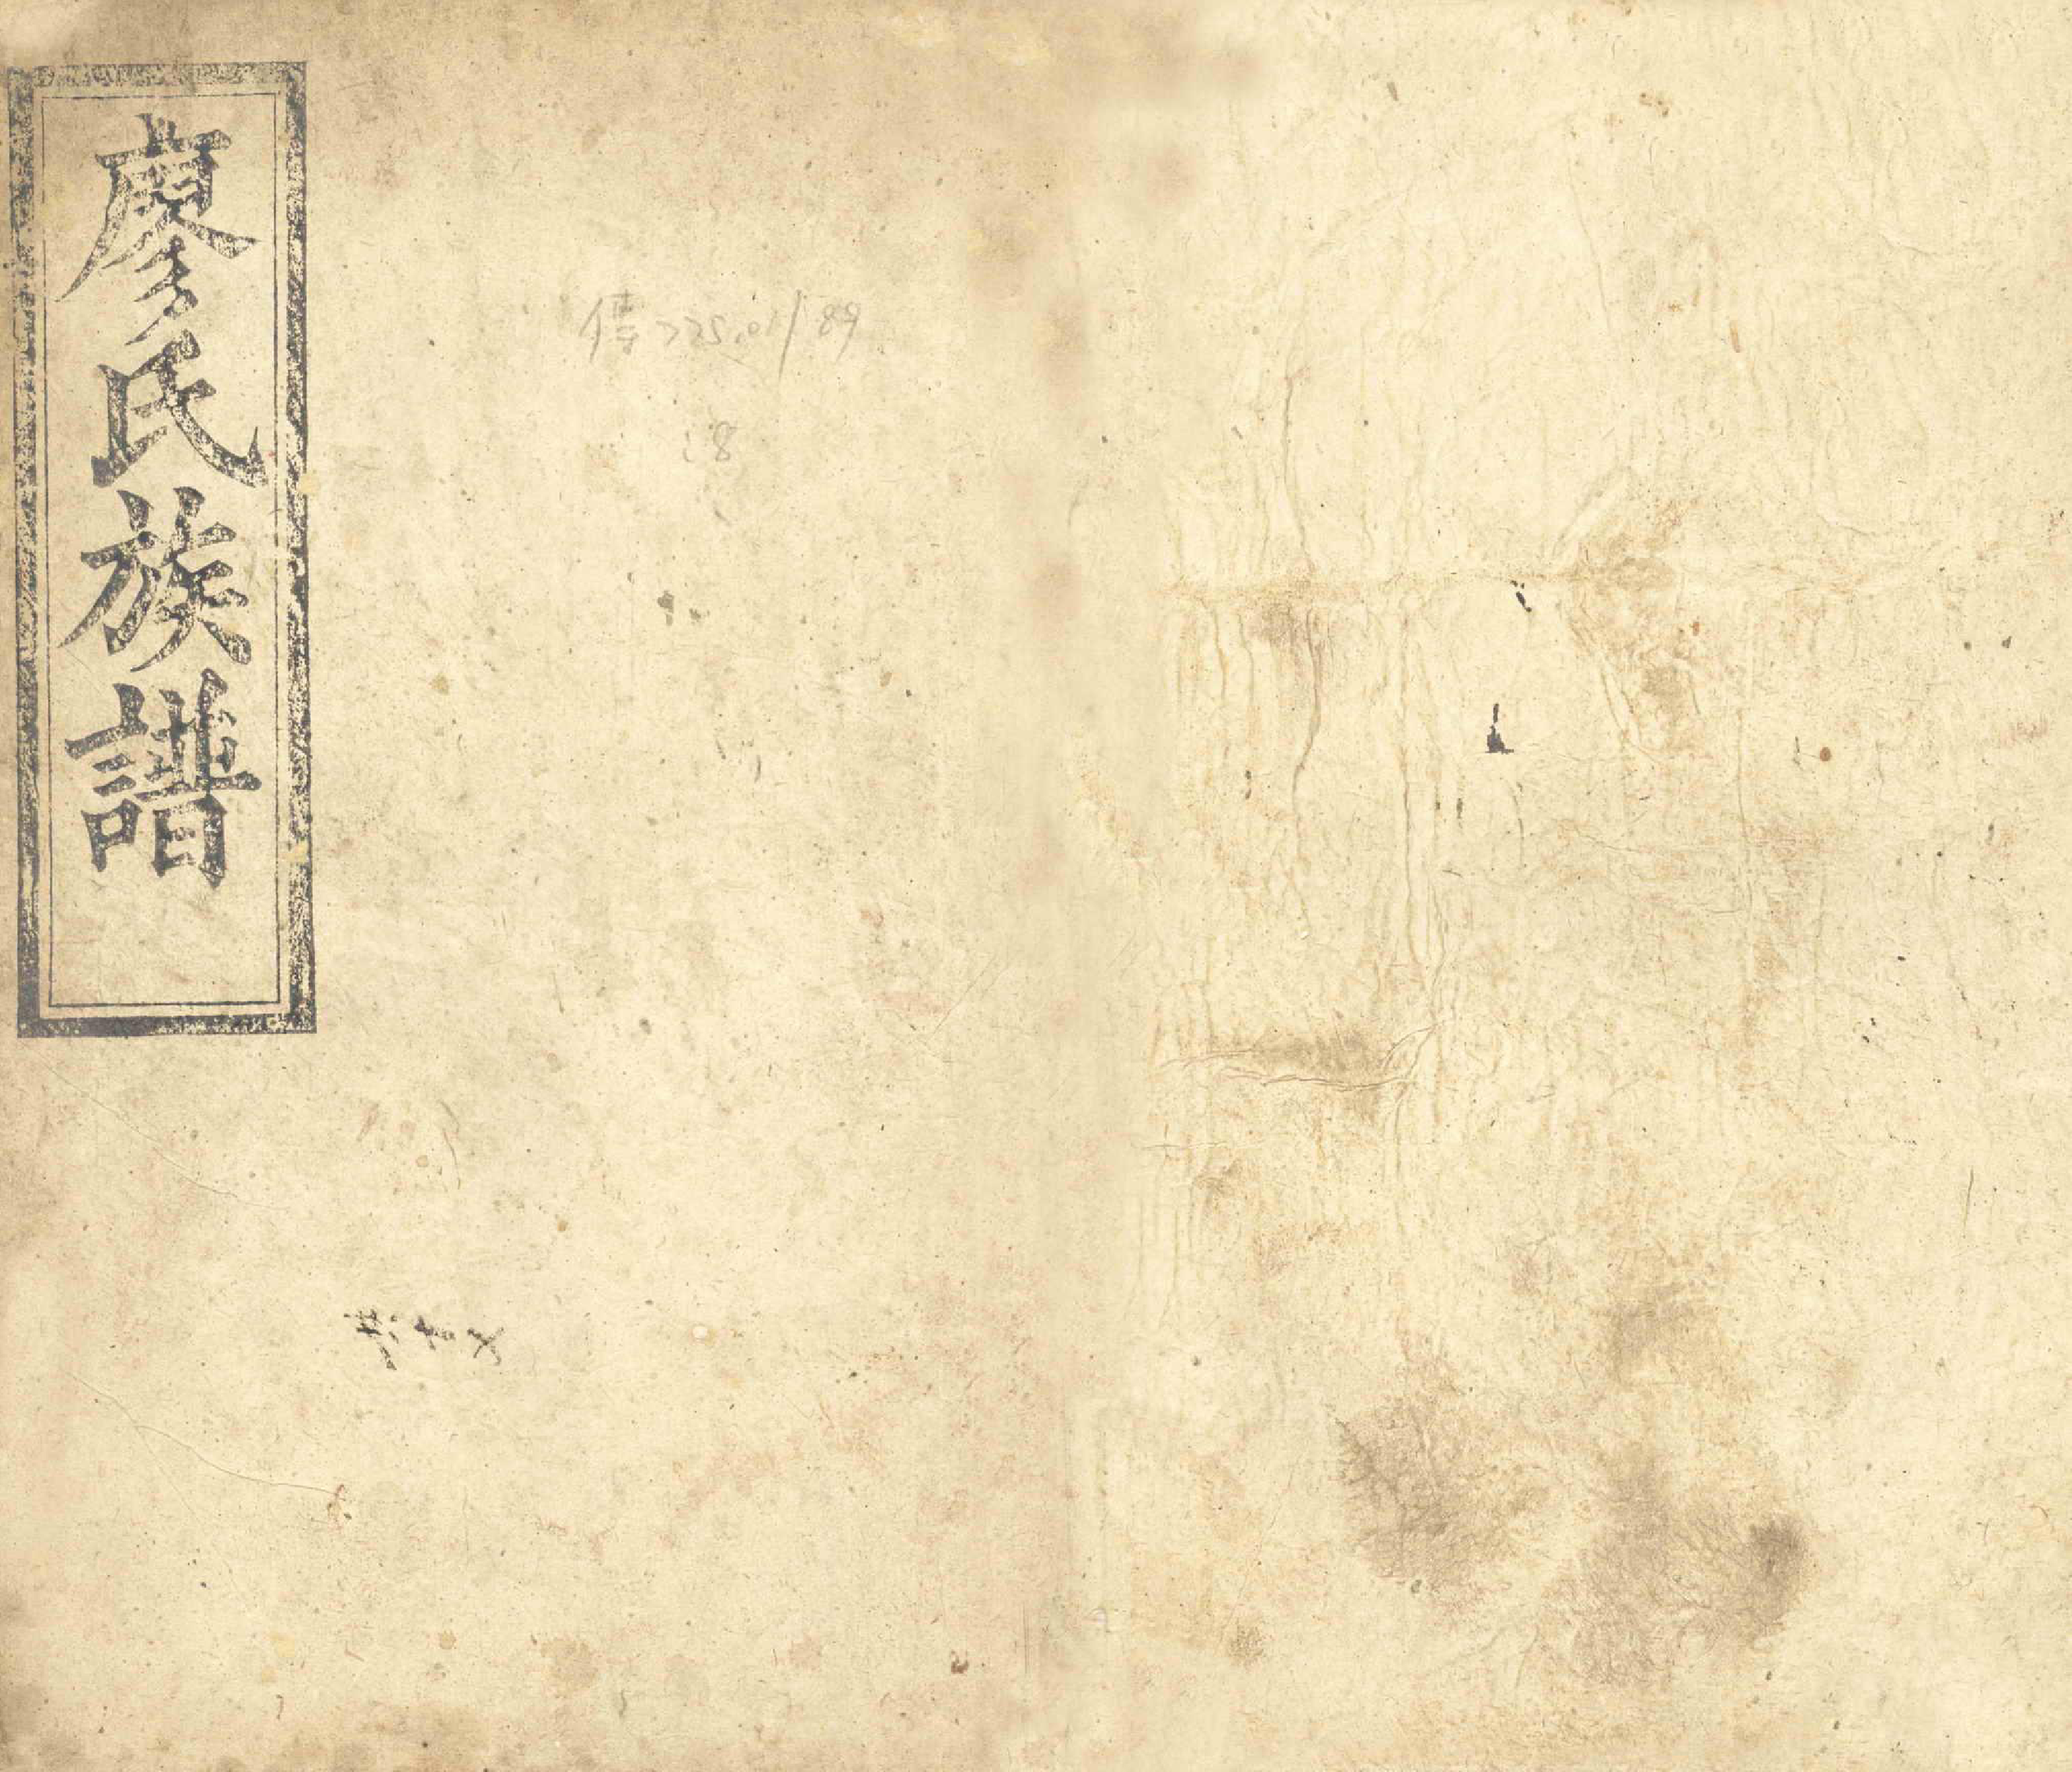 廖氏族譜
傳 775.01/89
:8